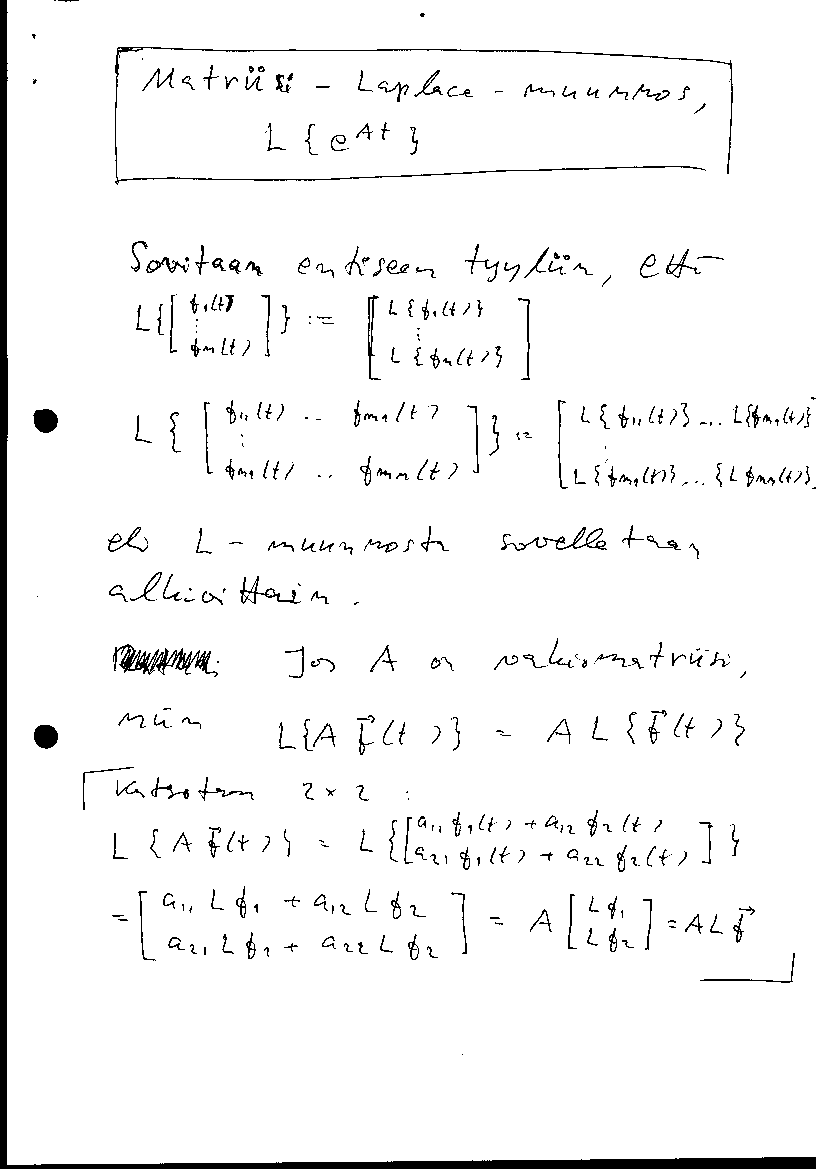 Matriisi - Laplace - muunnos,
L { e^{At} }
Sovitaan entiseen tyyliin, että
L{ [ f₁(t) ⋮ fₙ(t) ] } := [ L{f₁(t)} ⋮ L{fₙ(t)} ]
L { [ f₁₁(t) .. fₘ₁(t) ⋮ fₘ₁(t) .. fₘₙ(t) ] } = [ L{f₁₁(t)} ... L{fₘ₁(t)} ⋮ L{fₘ₁(t)} ... {L fₘₙ(t)} ]
eli L - muunnosta sovelletaan
alkioittain.
Jos A on vakiomatriisi,
niin L{A f⃗(t)} = A L{f⃗(t)}
Katsotaan 2 × 2 :
L {A f⃗(t)} = L{ [ a₁₁ f₁(t) + a₁₂ f₂(t) a₂₁ f₁(t) + a₂₂ f₂(t) ] }
= [ a₁₁ L f₁ + a₁₂ L f₂ a₂₁ L f₁ + a₂₂ L f₂ ] = A [ L f₁ L f₂ ] = A L f⃗